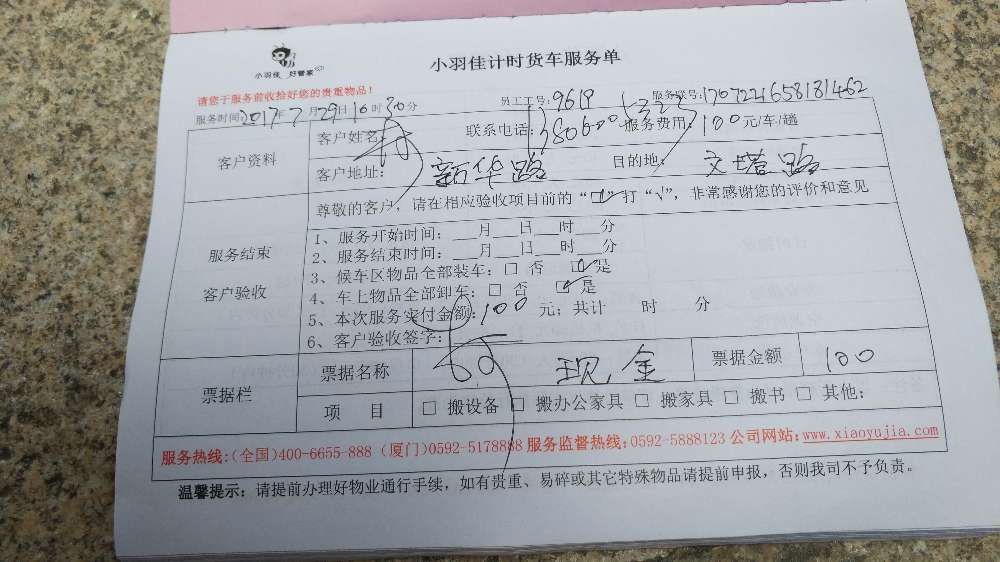 小羽佳 好管家
小羽佳计时货车服务单
请您于服务前收拾好您的贵重物品!
服务时间:2017年7月29日10时30分 员工工号:9619 服务账号:1707221658181462
客户资料
客户姓名: 联系电话: 服务费用:100元/车/趟
客户地址: 新华路 目的地: 文塔路
服务结束
客户验收
尊敬的客户,请在相应验收项目前的“□”打“√”,非常感谢您的评价和意见
1、服务开始时间:___月___日___时___分
2、服务结束时间:___月___日___时___分
3、候车区物品全部装车:□ 否 ☑是
4、车上物品全部卸车:□ 否 ☑是
5、本次服务实付金额:100 元;共计 时 分
6、客户验收签字:
票据栏
票据名称 现金 票据金额 100
项 目 □ 搬设备 □ 搬办公家具 □ 搬家具 □ 搬书 □ 其他:
服务热线:(全国)400-6655-888 (厦门)0592-5178888 服务监督热线:0592-5888123 公司网站:www.xiaoyujia.com
温馨提示:请提前办理好物业通行手续,如有贵重、易碎或其它特殊物品请提前申报,否则我司不予负责。